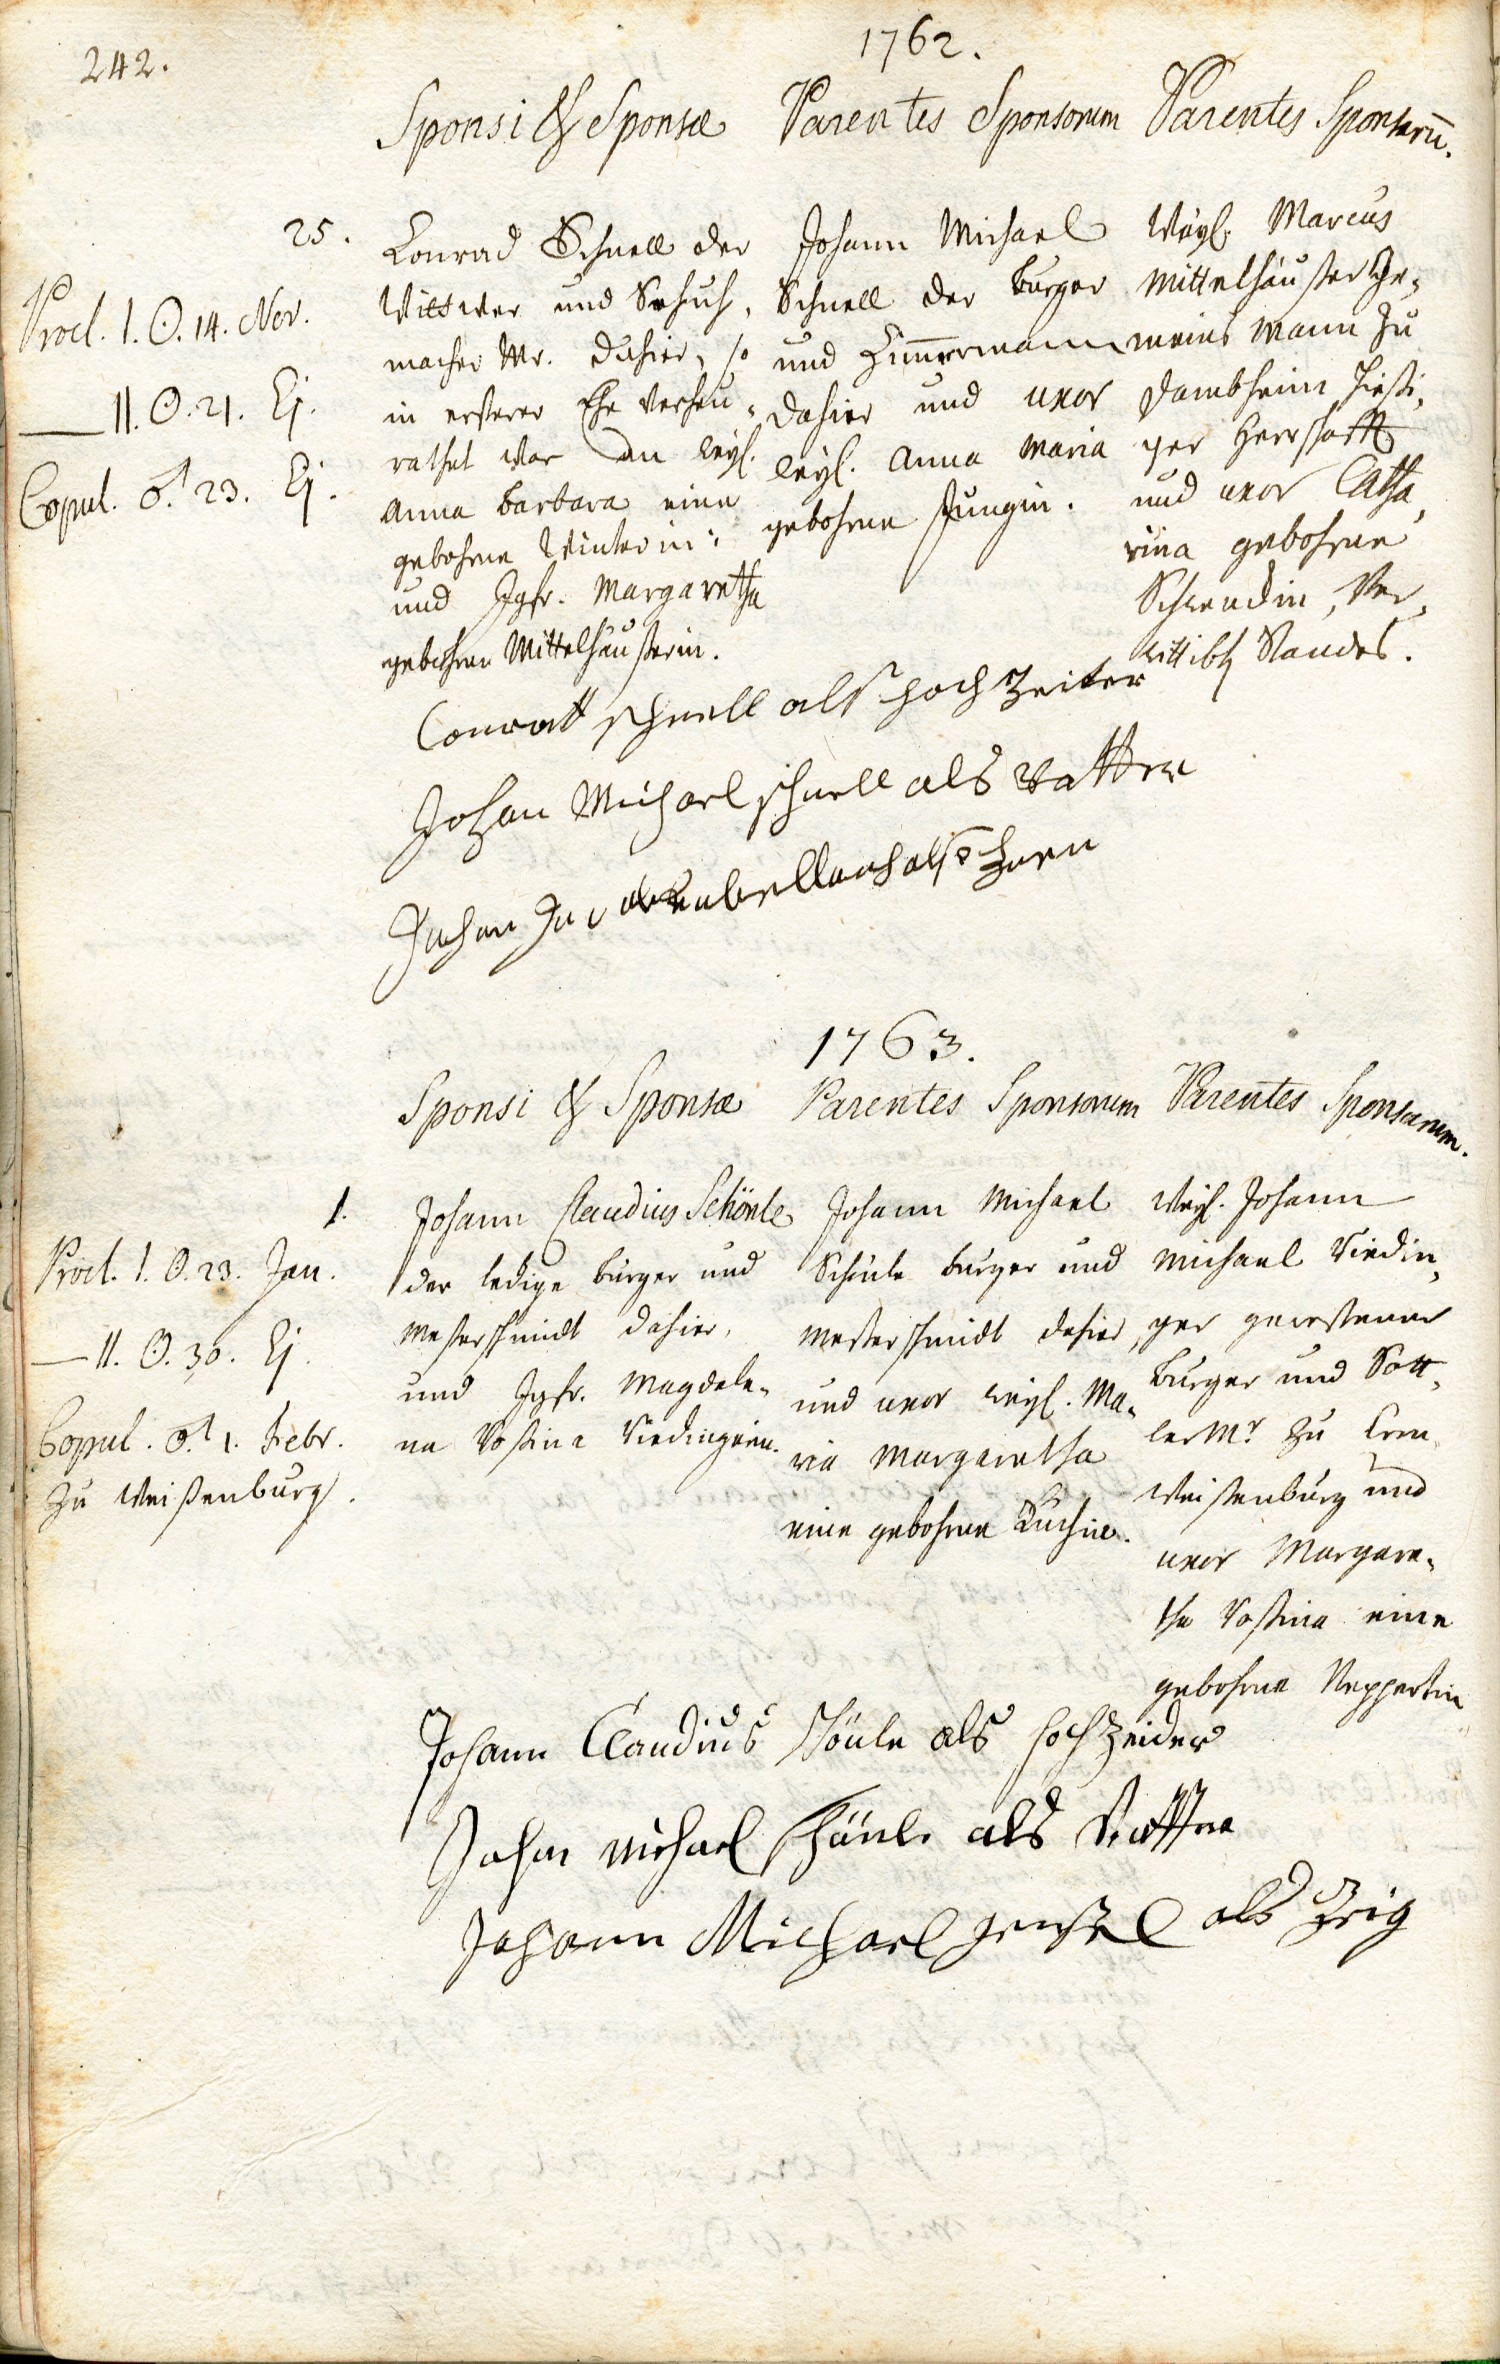 242.
1762.
Sponsi & Sponsæ
Parentes Sponsorum
Parentes Sponsarū.
25.
Procl. I. ☉. 14. Nov.
— II. ☉. 21. Ej.
Copul. ♂. 23. Ej.
Conrad Schnell der
Wittwer und Schuh-
macher Mr. dahier, so
in ersterer Ehe verheu-
rathet war an weyl.
Anna Barbara eine
gebohrne Winterin:
und Jgfr. Margaretha
gebohrne Mittelhäuserin.
Johann Michael
Schnell der burger
und Zimmermann
dahier und uxor
weyl. Anna Maria
gebohrne Jungin.
Weyl. Marcus
Mittelhäußer Ge-
meins Mann zu
Dambheim hießi-
ger Herrschafft
und uxor Catha-
rina gebohrne
Standes.
Conratt schnell als hoch Zeiter
Johan Michael schnell als Vatter
1763.
Sponsi & Sponsæ
Parentes Sponsorum
Parentes Sponsarum.
1.
Procl. I. ☉. 23. Jan.
— II. ☉. 30. Ej.
Copul. ♂. 1. Febr.
zu Weißenburg.
Johann Claudius Schönle
der ledige burger und
Meßerschmidt dahier,
und Jgfr. Magdale-
na Rosina Riedingerin.
Johann Michael
Schönle burger und
Meßerschmidt dahier
und uxor weyl. Ma-
ria Margaretha
eine gebohrne Kuchin.
Weyl. Johann
Michael Riedin-
ger gewesener
burger und Satt-
ler Mr. zu Cron
Weißenburg und
uxor Margare-
tha Rosina eine
gebohrne
Johann Claudius schönle als hochzeider
Johan Michael schönle als Vatter
Johann Michael als Zeig